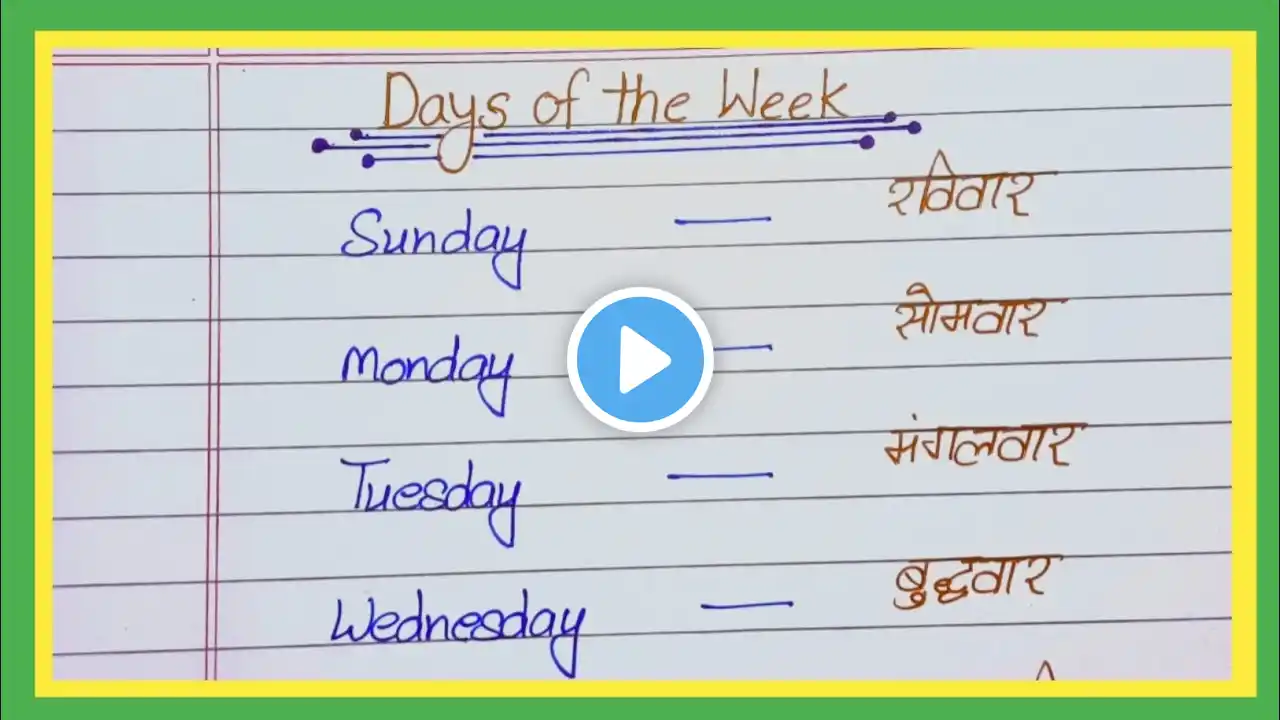 Days of the Week
Sunday — रविवार
Monday — सोमवार
Tuesday — मंगलवार
Wednesday — बुद्धवार